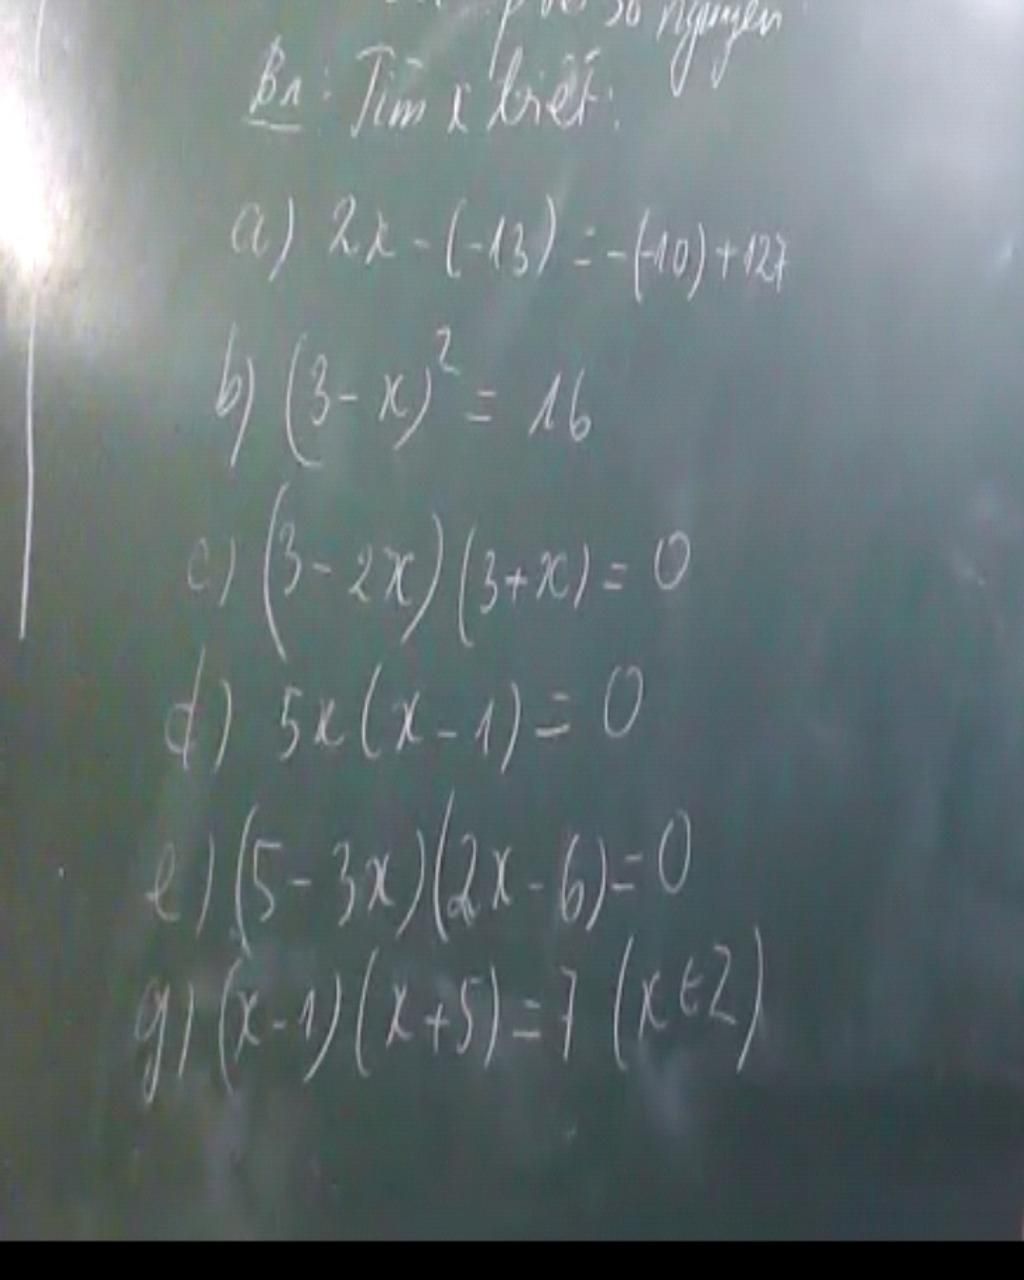 số nguyên
B1: Tìm x biết:
a) 2x - (-13) = -(-10) + 127
b) (3 - x)² = 16
c) (3 - 2x)(3 + x) = 0
d) 5x(x - 1) = 0
e) (5 - 3x)(2x - 6) = 0
g) (x - 1)(x + 5) = 7 (x ∈ Z)